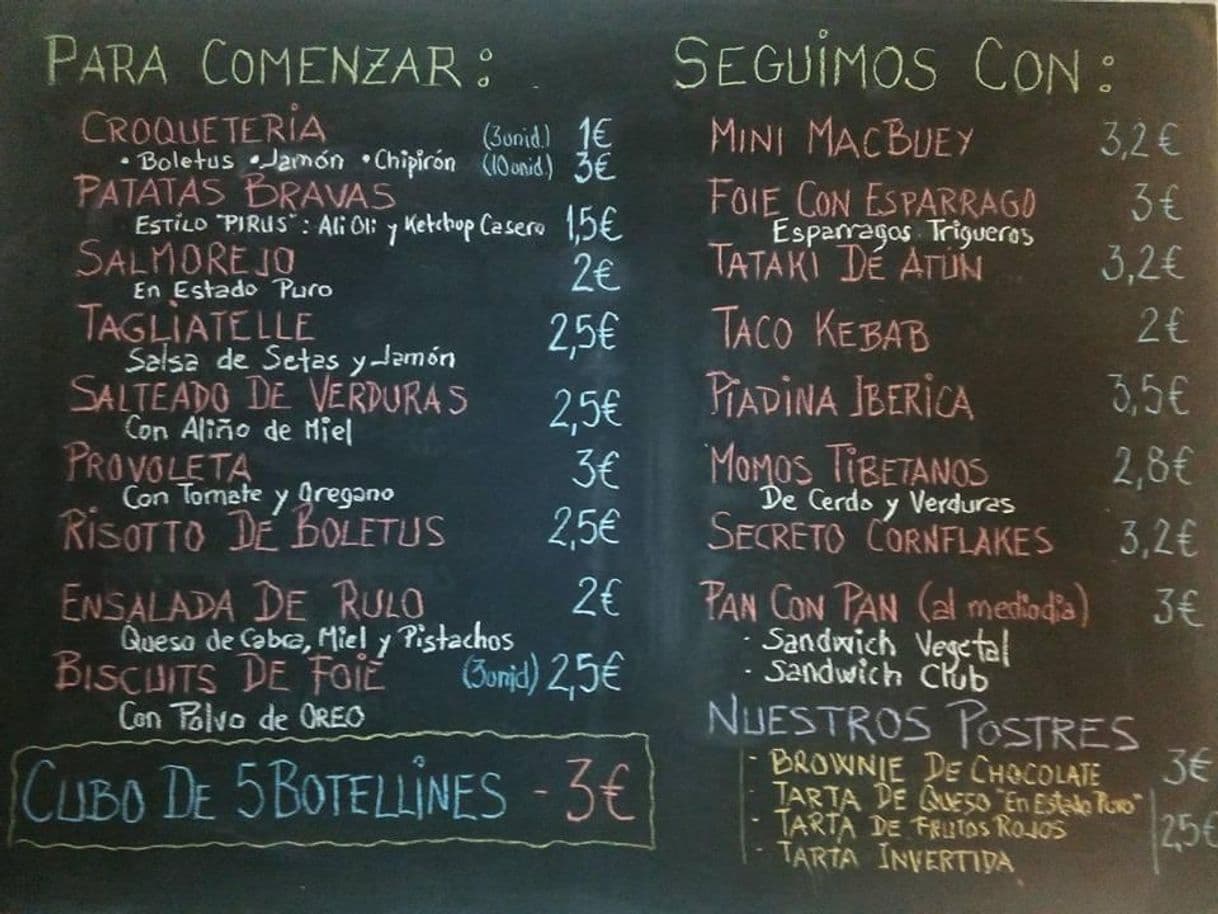 PARA COMENZAR:
CROQUETERIA (3unid.) 1€
• Boletus • Jamón • Chipirón (10unid.) 3€
PATATAS BRAVAS
ESTILO "PIRUS": Ali Oli y Ketchop Casero 1,5€
SALMOREJO 2€
En Estado Puro
TAGLIATELLE 2,5€
Salsa de Setas y Jamón
SALTEADO DE VERDURAS 2,5€
Con Aliño de Miel
PROVOLETA 3€
Con Tomate y Oregano
RISOTTO DE BOLETUS 2,5€
ENSALADA DE RULO 2€
Queso de Cabra, Miel y Pistachos
BISCUITS DE FOIE (3unid) 2,5€
Con Polvo de OREO
CUBO DE 5 BOTELLINES - 3€
SEGUIMOS CON:
MINI MACBUEY 3,2€
FOIE CON ESPARRAGO 3€
Esparragos Trigueros
TATAKI DE ATÚN 3,2€
TACO KEBAB 2€
PIADINA IBERICA 3,5€
MOMOS TIBETANOS 2,8€
De Cerdo y Verduras
SECRETO CORNFLAKES 3,2€
PAN CON PAN (al mediodia) 3€
- Sandwich Vegetal
- Sandwich Club
NUESTROS POSTRES
- BROWNIE DE CHOCOLATE 3€
- TARTA DE QUESO "En Estado Puro"
- TARTA DE FRUTOS ROJOS 2,5€
- TARTA INVERTIDA